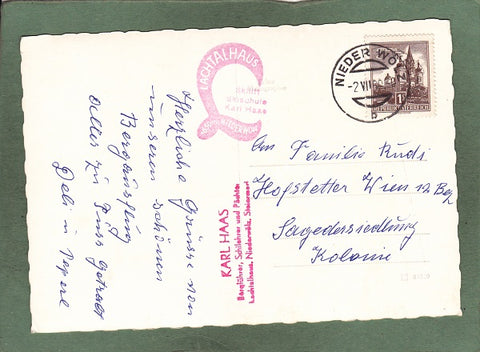 LACHTALHAUS
Skilift
Skischule
Karl Haas
NIEDERWÖLZ
NIEDER WÖLZ
-2.VII.60
b
REPUBLIK ÖSTERREICH
Herzliche Grüsse von
unseren schönen
Bergausflug
alles zu Fuss getratscht
KARL HAAS
Bergführer, Schilehrer und Pächter
Lachtalhaus, Niederwölz, Steiermark
An Familie Rudi
Hofstetter Wien 12. Bez
Sagedersiedlung
Kolonie